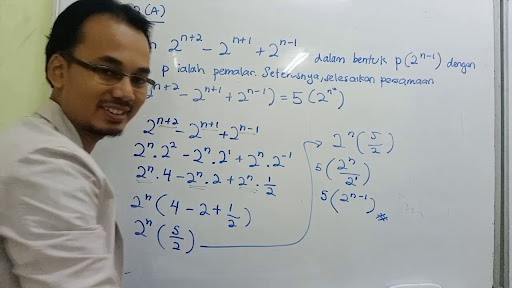 (A)
2^{n+2} - 2^{n+1} + 2^{n-1} dalam bentuk p(2^{n-1}) dengan
p ialah pemalar. Seterusnya, selesaikan persamaan
^{n+2} - 2^{n+1} + 2^{n-1}) = 5(2^{n²})
2^{n+2} - 2^{n+1} + 2^{n-1}
2^n . 2^2 - 2^n . 2^1 + 2^n . 2^{-1}
2^n . 4 - 2^n . 2 + 2^n . 1/2
2^n (4 - 2 + 1/2)
2^n (5/2)
→ 2^n (5/2)
5 (2^n/2^1)
5 (2^{n-1})